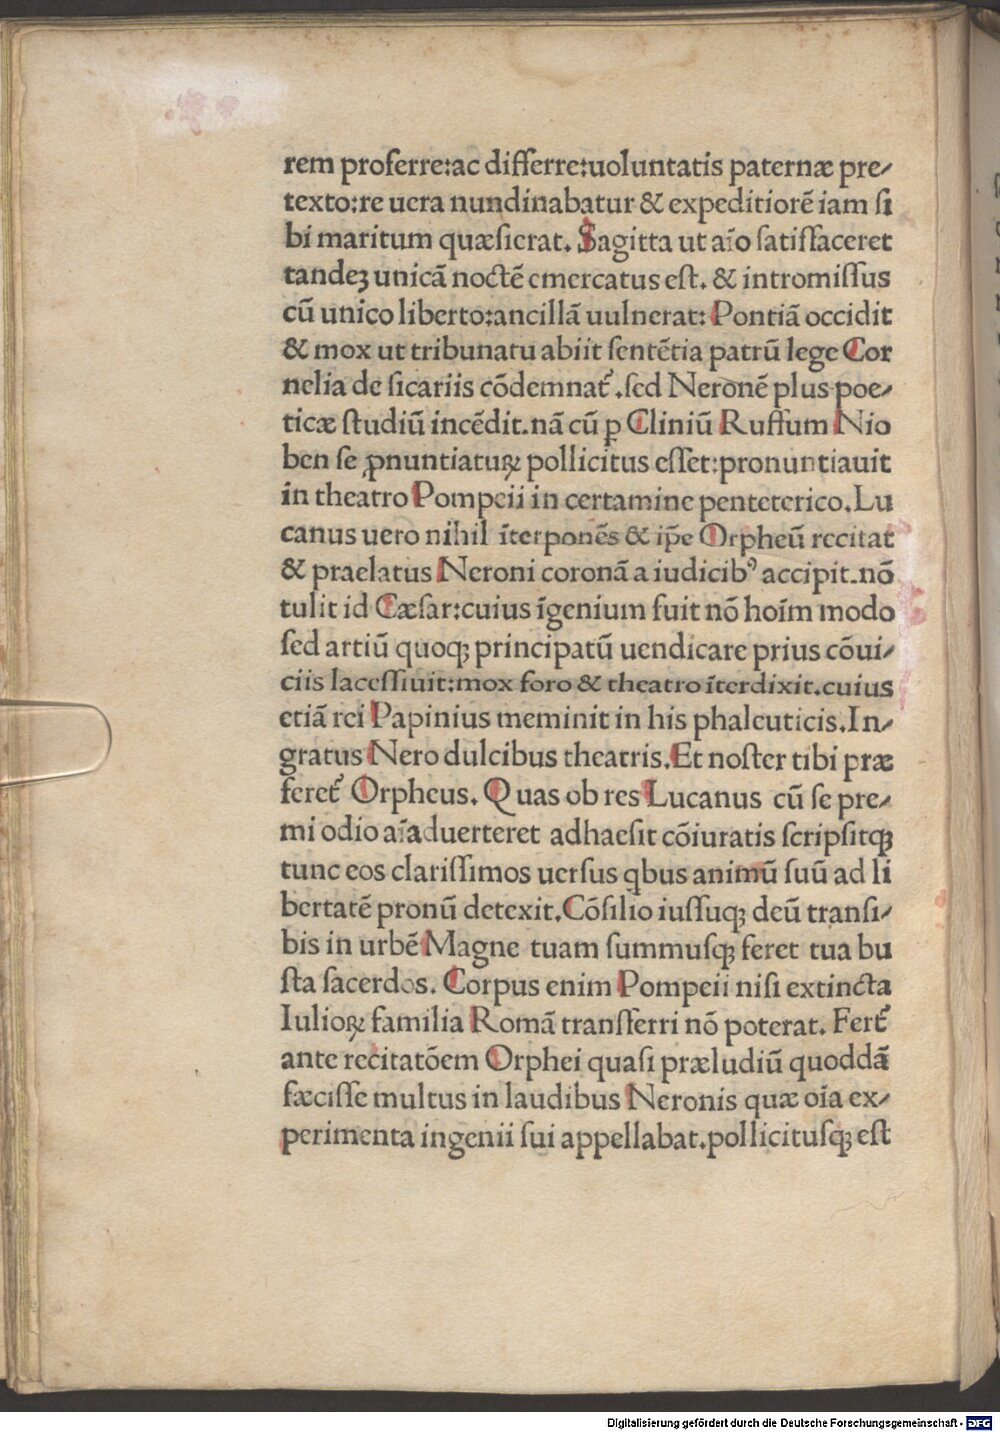 rem proferre:ac differre:uoluntatis paternæ pre⸗
texto:re uera nundinabatur & expeditiorē iam si
bi maritum quæsierat. Sagitta ut aīo satisfaceret
tandeʒ unicā noctē emercatus est. & intromissus
cū unico liberto:ancillā uulnerat: Pontiā occidit
& mox ut tribunatu abiit sentētia patrū lege Cor
nelia de sicariis cōdemnat᷑.sed Neronē plus poe⸗
ticæ studiū incēdit.nā cū ꝑ Cliniū Ruffum Nio
ben se ꝓnuntiaturꝝ pollicitus esset:pronuntiauit
in theatro Pompeii in certamine penteterico.Lu
canus uero nihil īterponēs & ip̄e Orpheū recitat
& praelatus Neroni coronā a iudicibꝰ accipit.nō
tulit id Cæsar:cuius īgenium fuit nō hoīm modo
sed artiū quoqꝫ principatū uendicare prius cōui⸗
ciis lacessiuit:mox foro & theatro īterdixit.cuius
etiā rei Papinius meminit in his phaleuticis.In⸗
gratus Nero dulcibus theatris.Et noster tibi præ
feret᷑ Orpheus. Quas ob res Lucanus cū se pre⸗
mi odio aīaduerteret adhaesit cōiuratis scripsitqꝫ
tunc eos clarissimos uersus qbus animū suū ad li
bertatē pronū detexit.Cōsilio iussuqꝫ deū transi⸗
bis in urbē Magne tuam summusqꝫ feret tua bu
sta sacerdos. Corpus enim Pompeii nisi extincta
Iulioꝝ familia Romā transferri nō poterat. Fert᷑
ante recitatōem Orphei quasi præludiū quoddā
fæcisse multus in laudibus Neronis quæ oīa ex⸗
perimenta ingenii sui appellabat.pollicitusqꝫ est
Digitalisierung gefördert durch die Deutsche Forschungsgemeinschaft - DFG